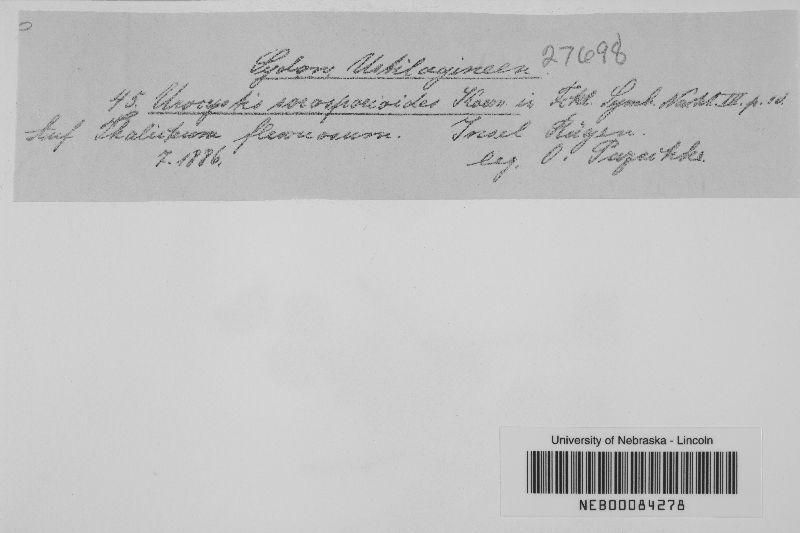 Sydow Ustilagineen. 27698
45. Urocystis sorosporioides Koern in Fckl. Symb. Nachtr. III. p.
Auf Thalictrum flexuosum. Insel Rügen.
7. 1886. leg. O. Pazschke.
University of Nebraska - Lincoln
NEB00084278